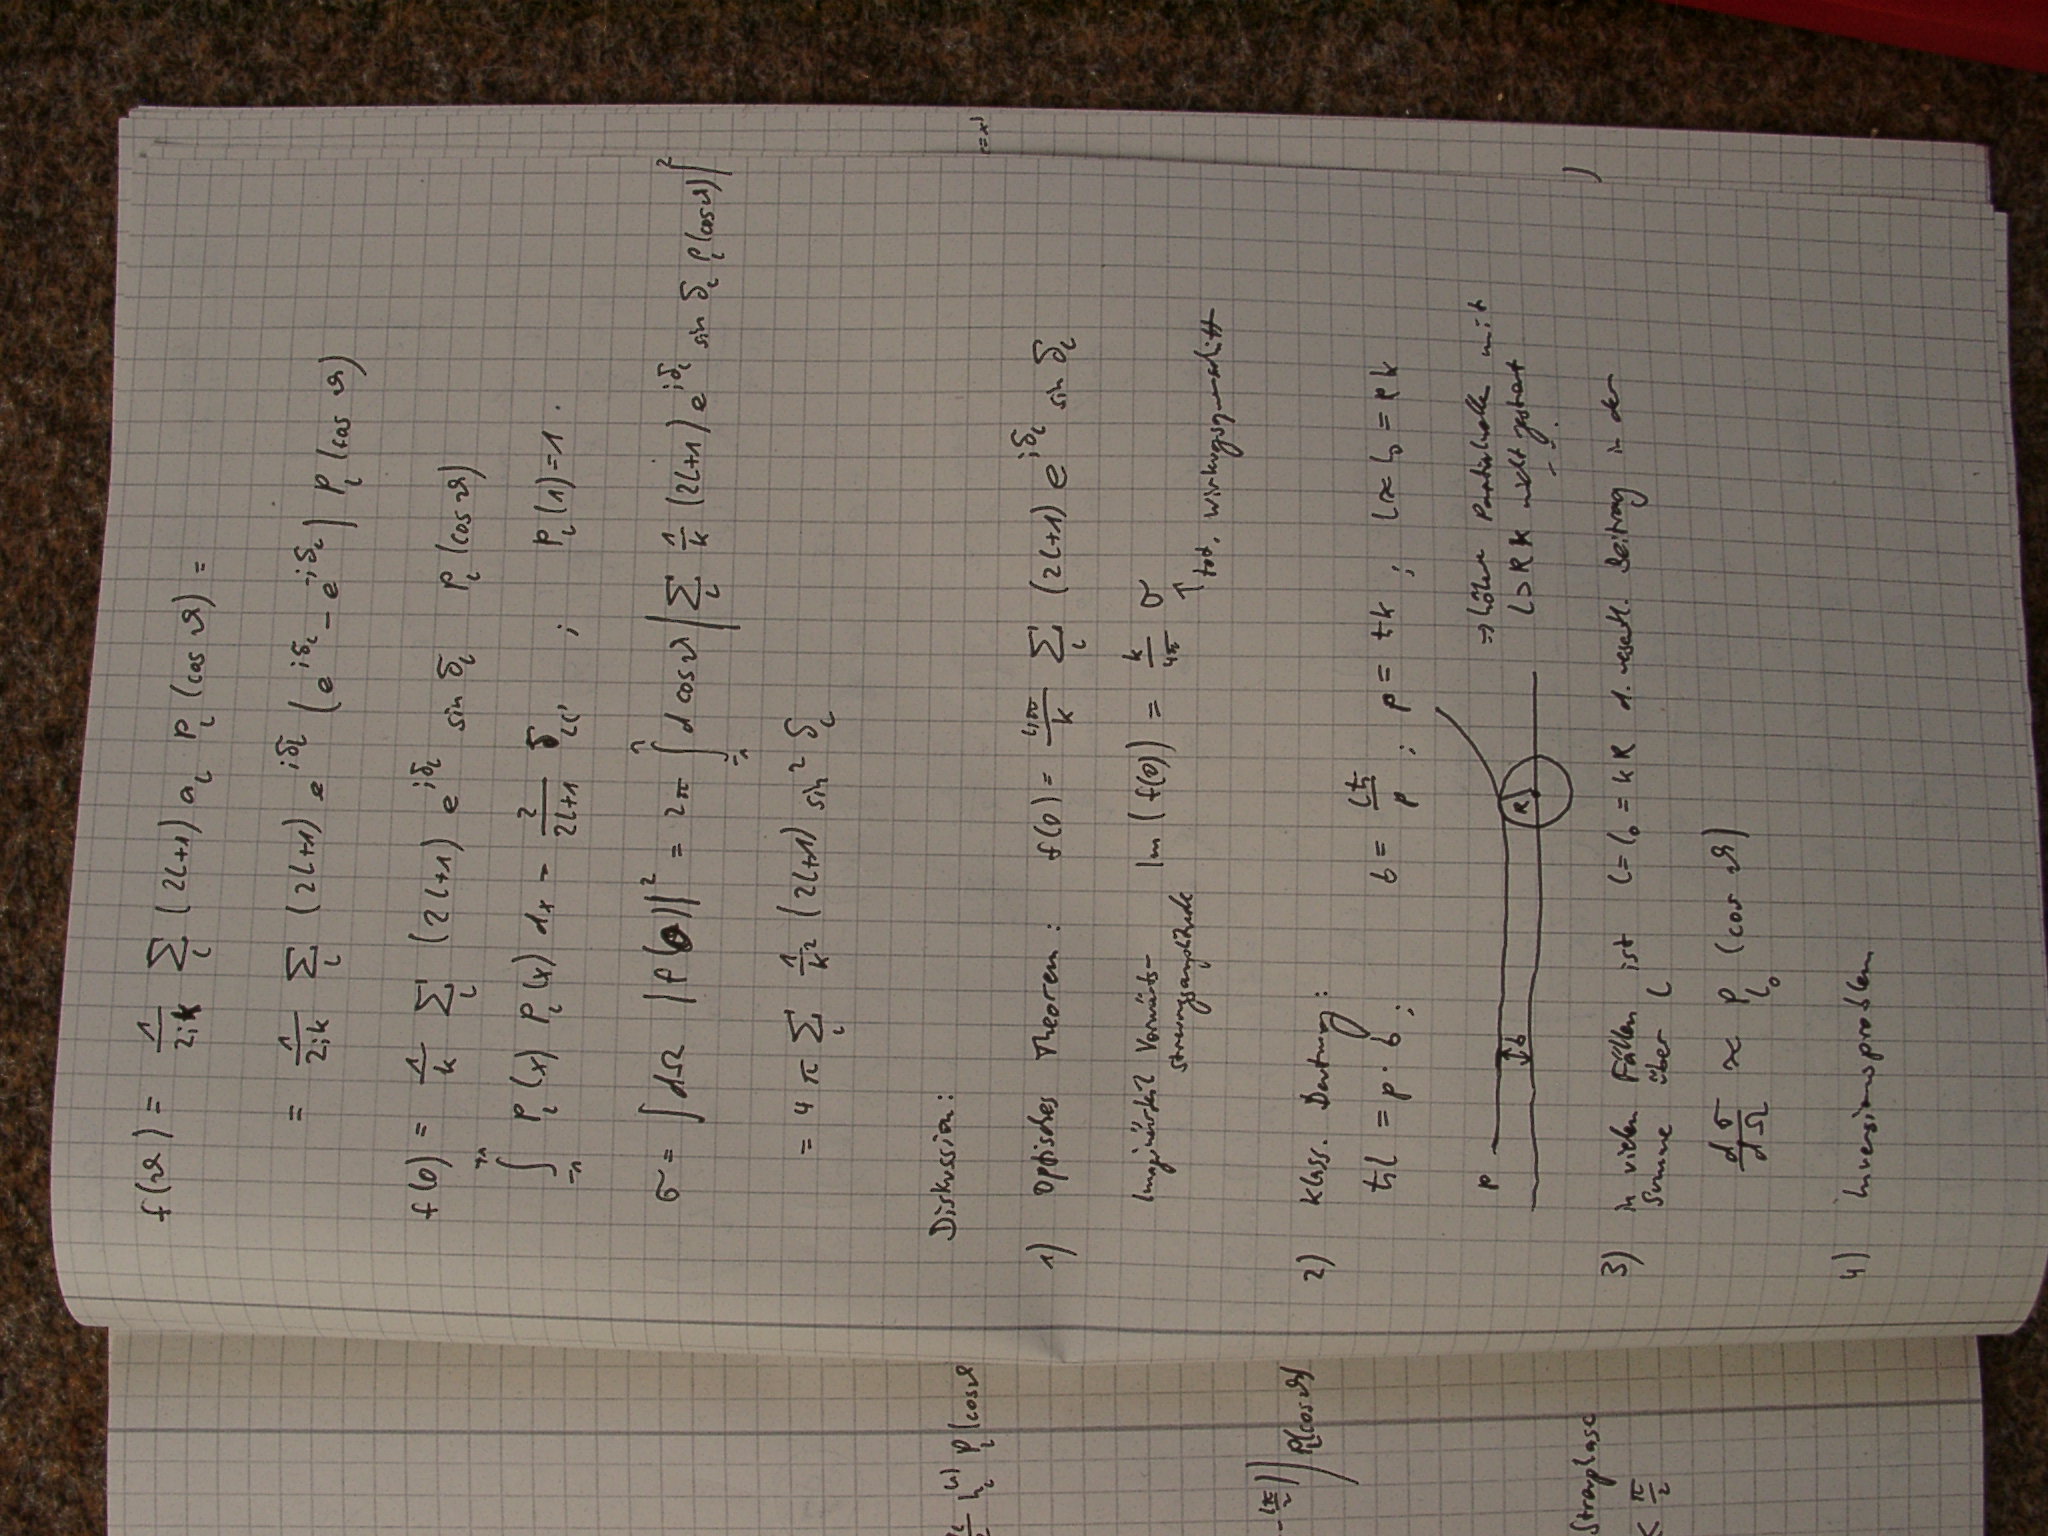 f(ϑ) = 1/(2ik) Σ_l (2l+1) a_l P_l(cos ϑ) =
= 1/(2ik) Σ_l (2l+1) e^{iδ_l} (e^{iδ_l} - e^{-iδ_l}) P_l(cos ϑ)
f(0) = 1/k Σ_l (2l+1) e^{iδ_l} sin δ_l P_l(cos ϑ)
∫_{-1}^{+1} P_l(x) P_l(x) dx = 2/(2l+1) δ_{ll'} ; P_l(1) = 1.
σ = ∫dΩ |f(θ)|² = 2π ∫_{-1}^{1} d cos ϑ |Σ_l 1/k (2l+1) e^{iδ_l} sin δ_l P_l(cos ϑ)|²
= 4π Σ_l 1/k² (2l+1) sin² δ_l
Diskussion:
1) Optisches Theorem: f(0) = 4π/k Σ_l (2l+1) e^{iδ_l} sin δ_l
Imaginärteil Vorwärts- Im(f(0)) = k/4π σ
streuungsamplitude ↑ tot. Wirkungsquerschnitt
2) Klass. Deutung:
ħl = p · b ; b = lħ/p ; p = ħk ; l ≈ l_0 = Rk
p b R
⇒ höhere Partialwelle mit
l > Rk nicht gestreut
3) in vielen Fällen ist l = l_0 = kR d. wesentl. Beitrag in der
Summe über l
dσ/dΩ ≈ P_{l_0} (cos ϑ)
4) Inversionsproblem
P_l(cos ϑ
P_l(cos ϑ)
Streuphase
< π/2